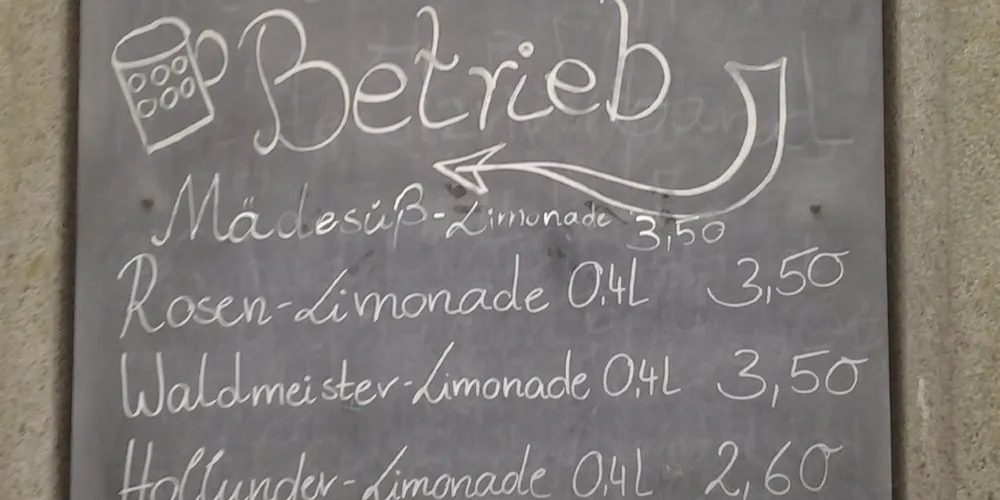 Betrieb
Mädesüß-Limonade 3,50
Rosen-Limonade 0,4L 3,50
Waldmeister-Limonade 0,4L 3,50
Hollunder-Limonade 0,4L 2,60